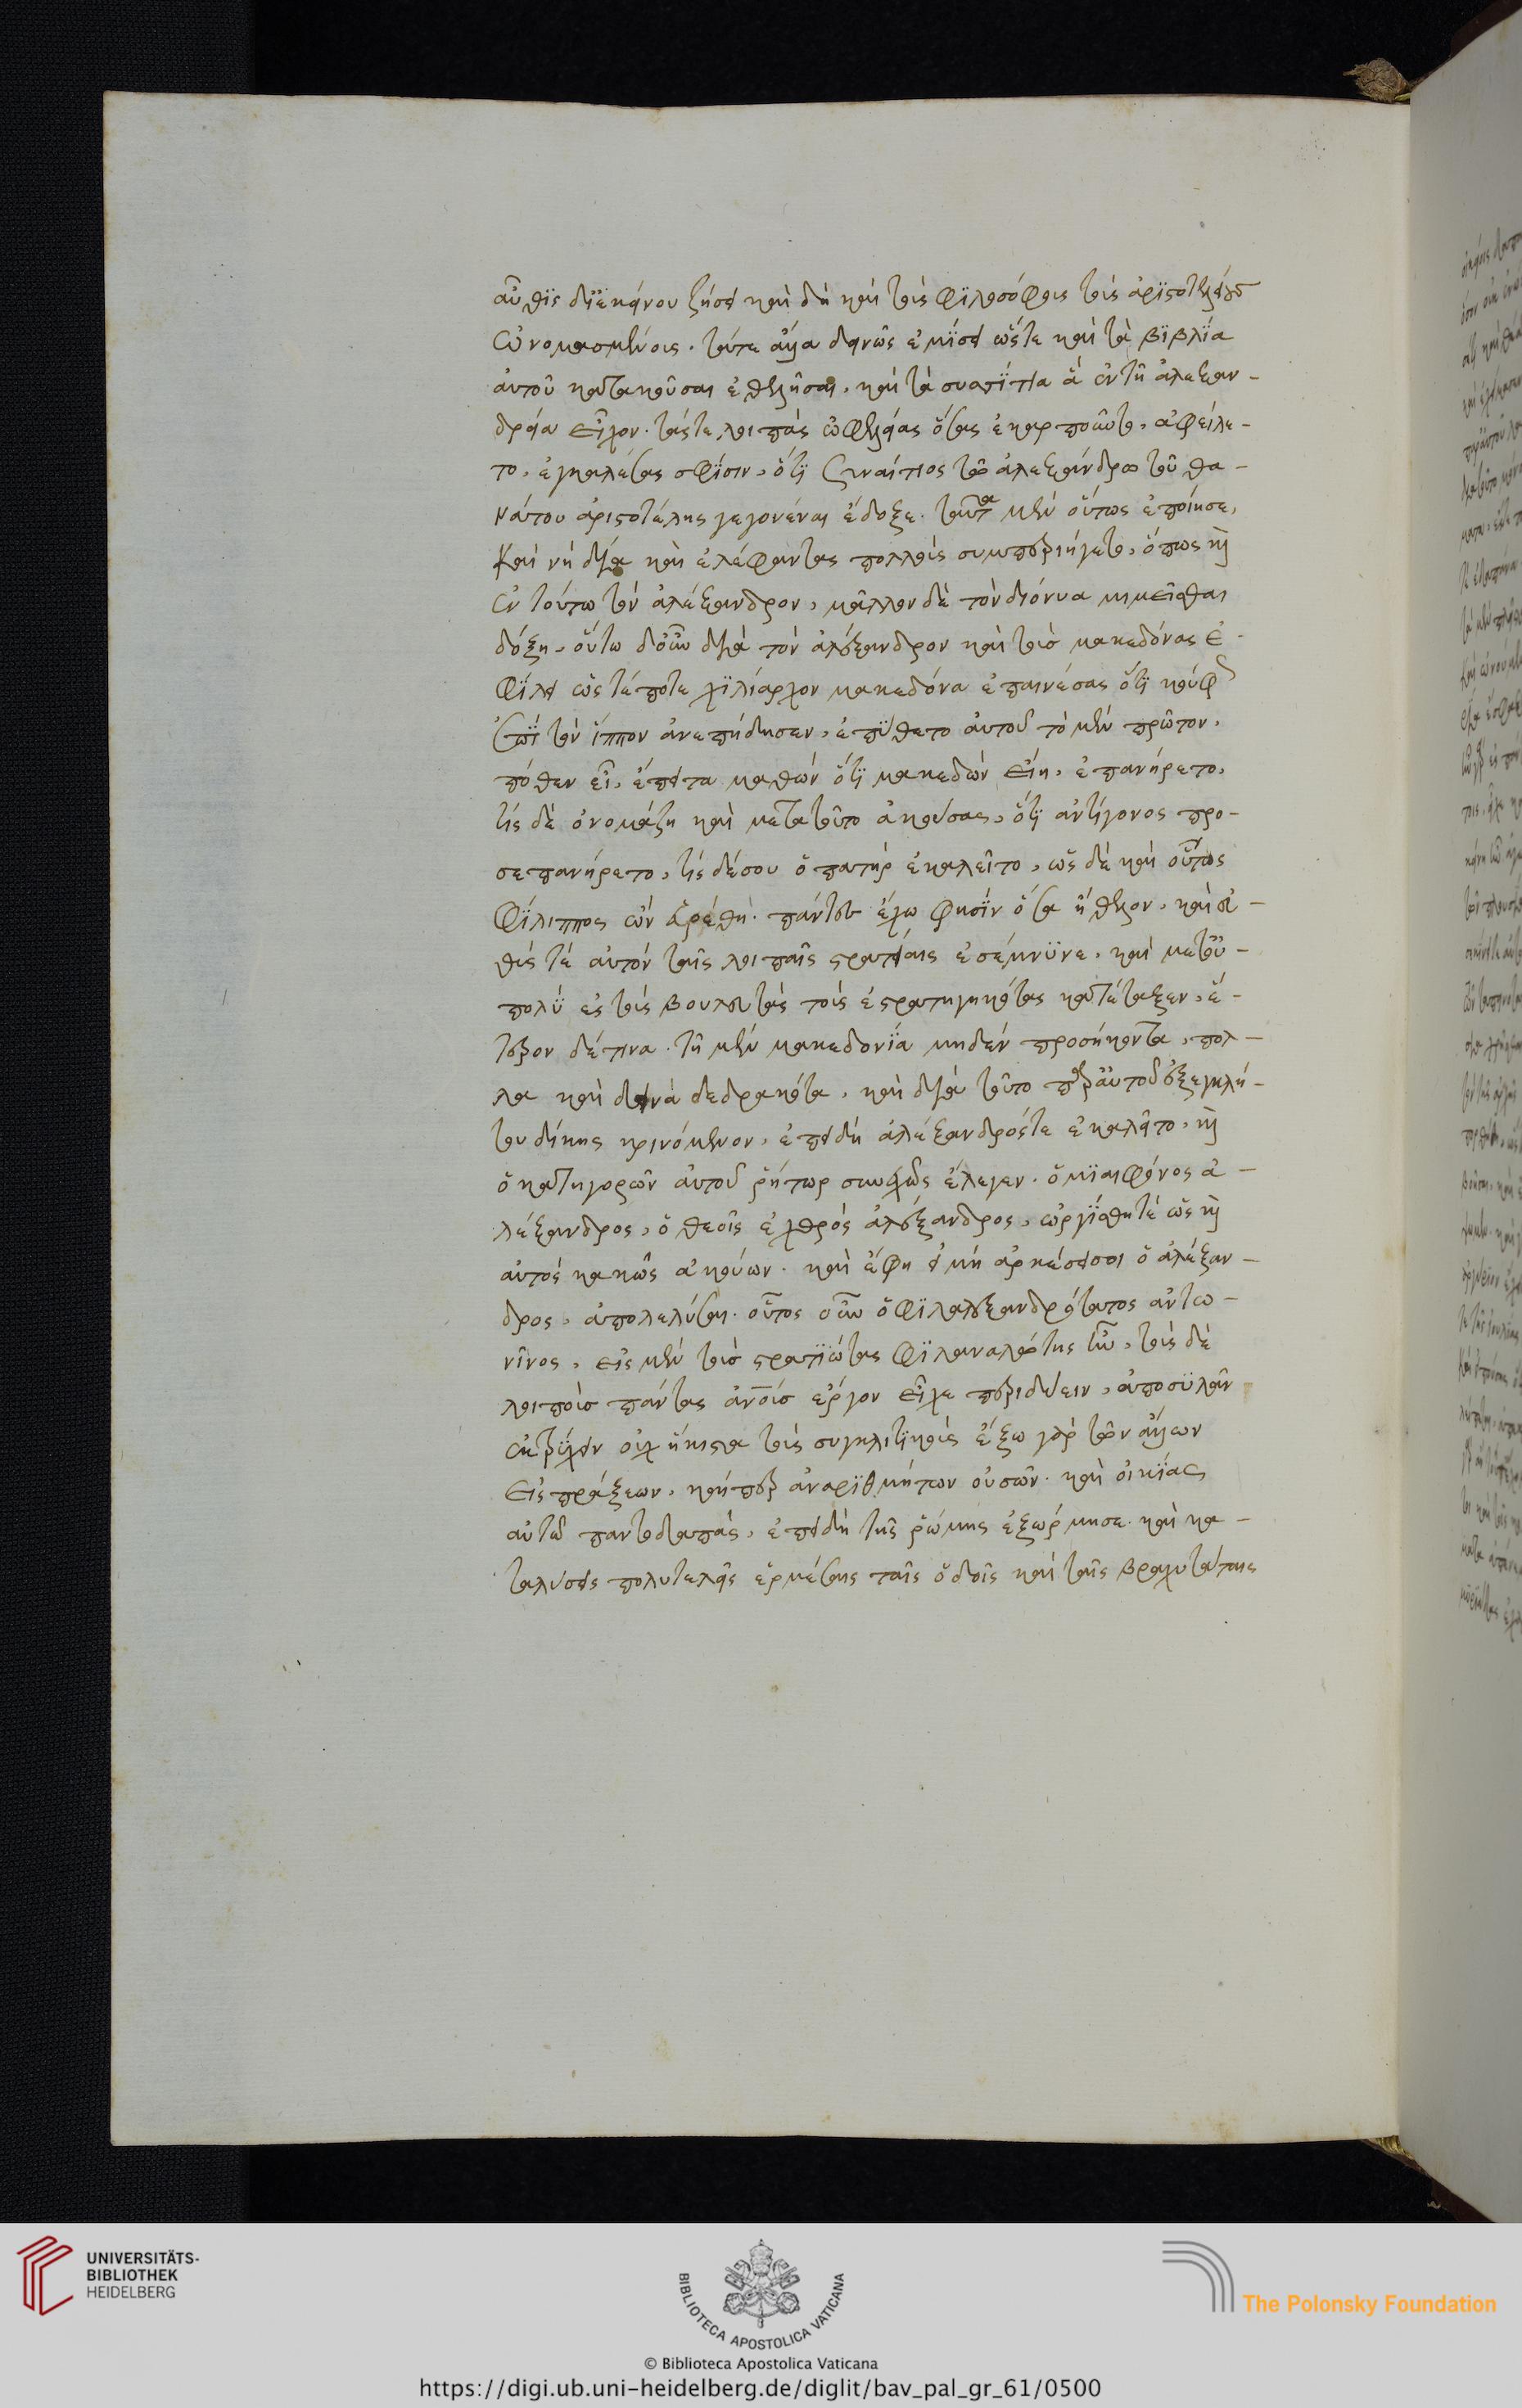 αὖθις διἐκείνου ζήσει καὶ δὴ καὶ τοὺς φιλοσόφους τοὺς ἀριστοτελείους
ὠνομασμένους. τάτε ἄλλα δεινῶς ἐμίσει ὥστε καὶ τὰ βιβλία
αὐτοῦ κατακαῦσαι ἐθελῆσαι. καὶ τὰ συσσίτια ἃ ἐν τῇ ἀλεξαν-
δρεία εἶχον. τάςτε λοιπὰς ὠφελείας ὅσας ἐκαρποῦντο, ἀφείλε-
το, ἐγκαλέσας σφίσιν, ὅτι συναίτιος τῶ ἀλεξάνδρω τοῦ θα-
νάτου ἀριστοτέλης γεγονέναι ἔδοξε. ταῦτα μὲν οὕτως ἐποίησε,
καὶ νὴ δία καὶ ἐλέφαντας πολλοὺς συμπεριήγετο, ὅπως καὶ
ἐν τούτω τὸν ἀλέξανδρον, μᾶλλον δὲ τὸν διόνυσον μιμεῖσθαι
δόξη, οὕτω δοὖν διὰ τὸν ἀλέξανδρον καὶ τοὺς μακεδόνας ἐ-
φίλει ὥς τέ ποτε χιλίαρχον μακεδόνα ἐπαινέσας ὅτι κούφως
ἐπὶ τὸν ἵππον ἀνεπήδησεν, ἐπύθετο αὐτοῦ τὸ μὲν πρῶτον,
πόθεν εἶ, ἔπειτα μαθὼν ὅτι μακεδὼν εἴη, ἐπανήρετο,
τίς δὲ ὀνομάζη καὶ μετατοῦτο ἀκούσας, ὅτι ἀντίγονος προ-
σεπανήρετο, τίς δέσου ὁ πατὴρ ἐκαλεῖτο, ὡς δὲ καὶ οὗτος
φίλιππος ὢν εὑρέθη. πάντα ἔχω φησὶν ὅσα ἤθελον, καὶ εὐ-
θύς τέ αὐτὸν ταῖς λοιπαῖς στρατείαις ἐσέμνυνε, καὶ μετοὐ-
πολὺ ἐς τοὺς βουλευτὰς τοὺς ἐστρατηγηκότας κατέταξεν, ἕ-
τερον δέτινα. τῆ μὲν μακεδονία μηδὲν προσήκοντα, πολ-
λὰ καὶ δεινὰ δεδρακότα, καὶ διὰ τοῦτο παρ αὐτοῦ ἐξ ἐκκλή-
του δίκης κρινόμενον, ἐπειδὴ ἀλέξανδρόςτε ἐκαλεῖτο, καὶ
ὁ κατηγορῶν αὐτοῦ ῥήτωρ συνεχῶς ἔλεγεν. ὁ μιαιφόνος ἀ-
λέξανδρος, ὁ θεοῖς ἐχθρὸς ἀλέξανδρος, ὠργίσθητέ ὡς καὶ
αὐτὸς κακῶς ἀκούων. καὶ ἔφη εἰ μὴ ἀρκέσεισοι ὁ ἀλέξαν-
δρος, ἀπολέλυσαι. οὗτος οὖν ὁ φιλαλεξανδρότατος ἀντω-
νῖνος, εἰς μὲν τοὺς στρατιώτας φιλαναλωτὴς ἦν, τοὺς δὲ
λοιποὺς πάντας ἀνους ἔργον εἶχε περιδύειν, ἀποσυλᾶν
ἐκτρύχειν οὐχ ἥκιστα τοὺς συγκλητικοὺς ἔξω γὰρ τῶν ἄλλων
εἰσπράξεων, καίπερ ἀναριθμήτων οὐσῶν. καὶ οἰκίας
αὐτῶ παντοδαπὰς, ἐπειδὴ τῆς ῥώμης ἐξώρμησε. καὶ κα-
ταλύσεις πολυτελεῖς ἐν μέσαις ταῖς ὁδοῖς καὶ ταῖς βραχυτάταις
UNIVERSITÄTS-
BIBLIOTHEK
HEIDELBERG
BIBLIOTECA APOSTOLICA VATICANA
The Polonsky Foundation
© Biblioteca Apostolica Vaticana
https://digi.ub.uni-heidelberg.de/diglit/bav_pal_gr_61/0500